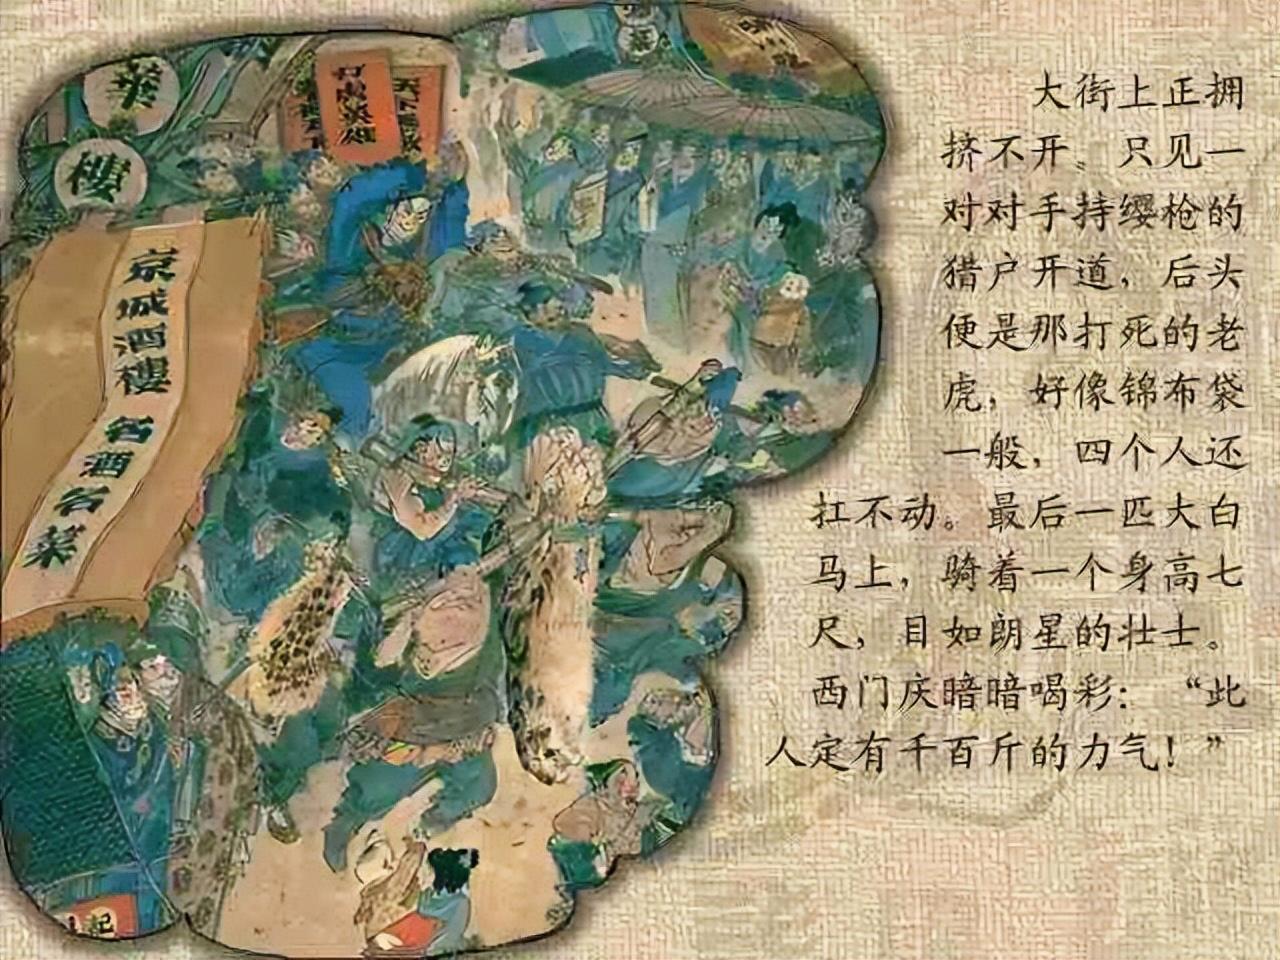 華
樓
打虎英雄
天下
京城酒樓 名酒名菜
大街上正拥
挤不开。只见一
对对手持缨枪的
猎户开道，后头
便是那打死的老
虎，好像锦布袋
一般，四个人还
扛不动。最后一匹大白
马上，骑着一个身高七
尺，目如朗星的壮士。
西门庆暗暗喝彩：“此
人定有千百斤的力气！”
記